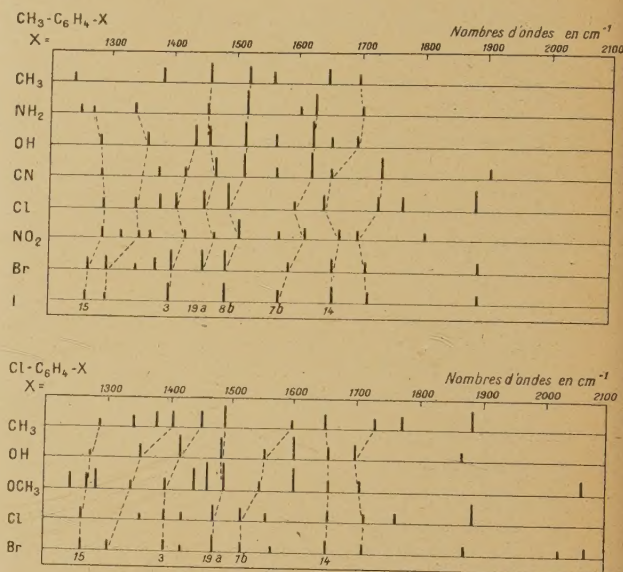 CH₃-C₆H₄-X
Nombres d'ondes en cm⁻¹
X = 1300 1400 1500 1600 1700 1800 1900 2000 2100
CH₃
NH₂
OH
CN
Cl
NO₂
Br
I
15 3 19a 8b 7b 14
Cl-C₆H₄-X
Nombres d'ondes en cm⁻¹
X = 1300 1400 1500 1600 1700 1800 1900 2000 2100
CH₃
OH
OCH₃
Cl
Br
15 3 19a 7b 14